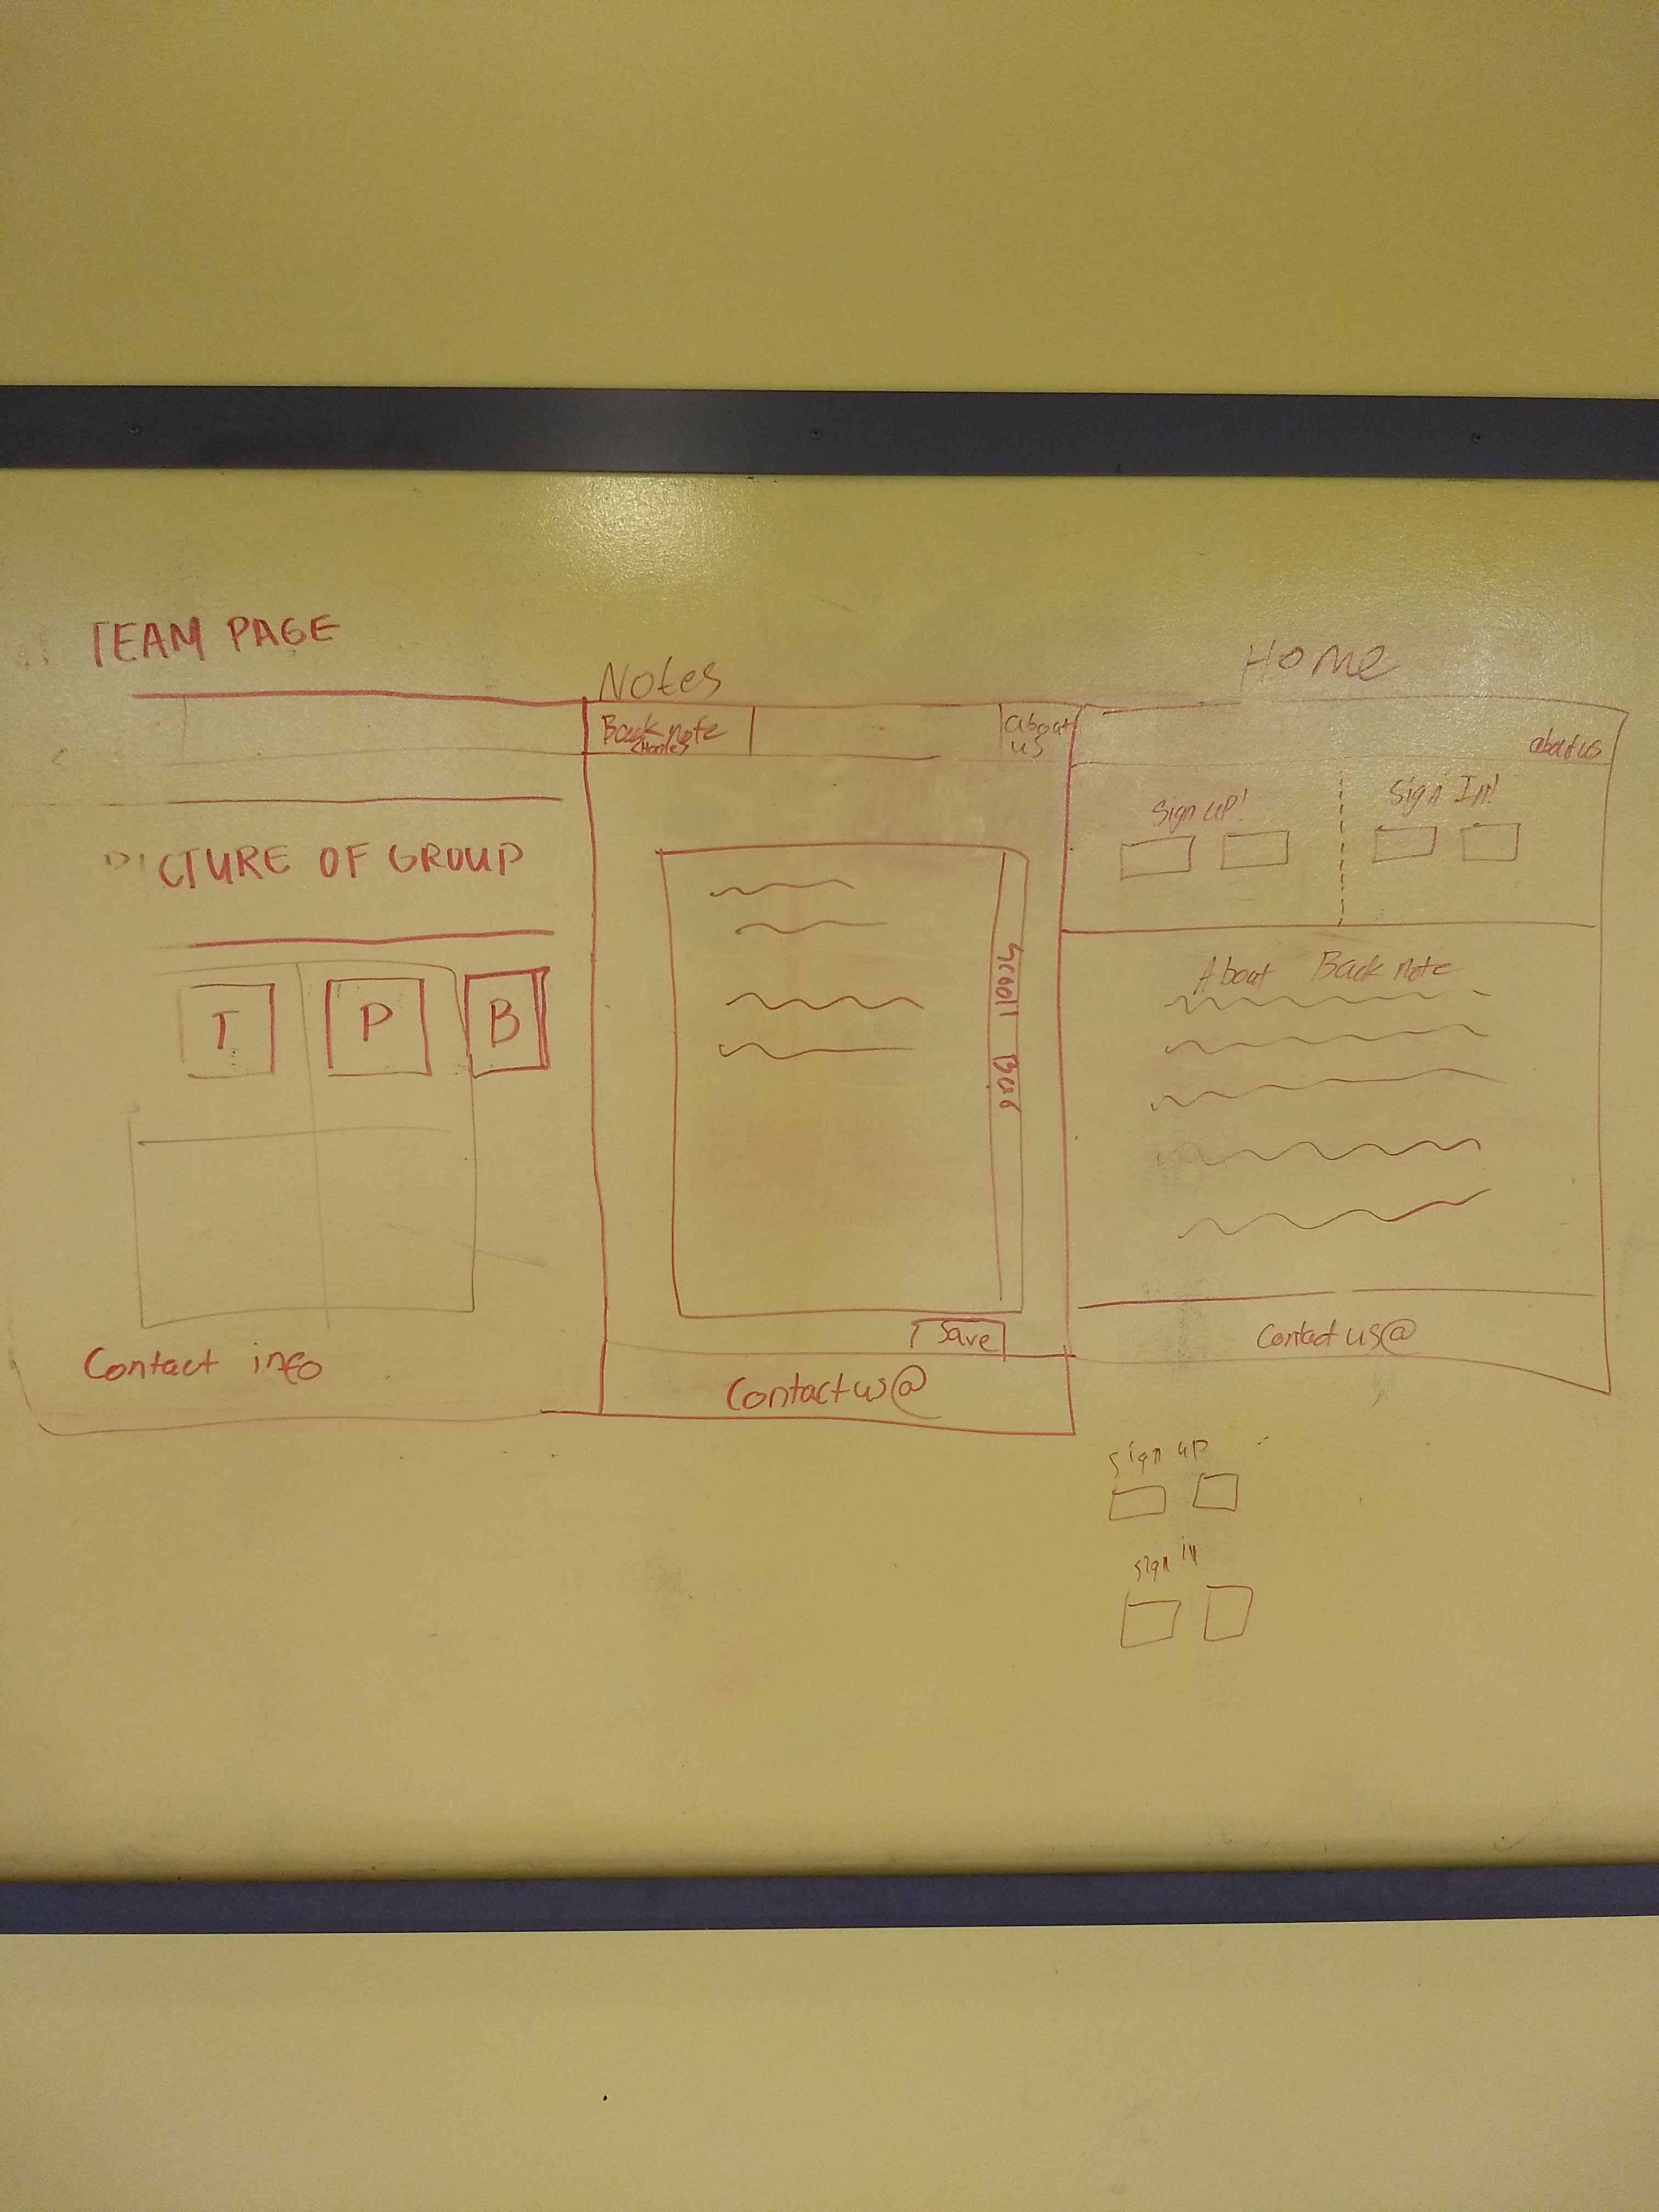 TEAM PAGE
PICTURE OF GROUP
T P B
Contact info
Notes
Back note
<Home>
about
us
Scroll Bar
Save
Contact us@
Home
about us
Sign up!
Sign In!
About Back note
Contact us@
sign up
sign in